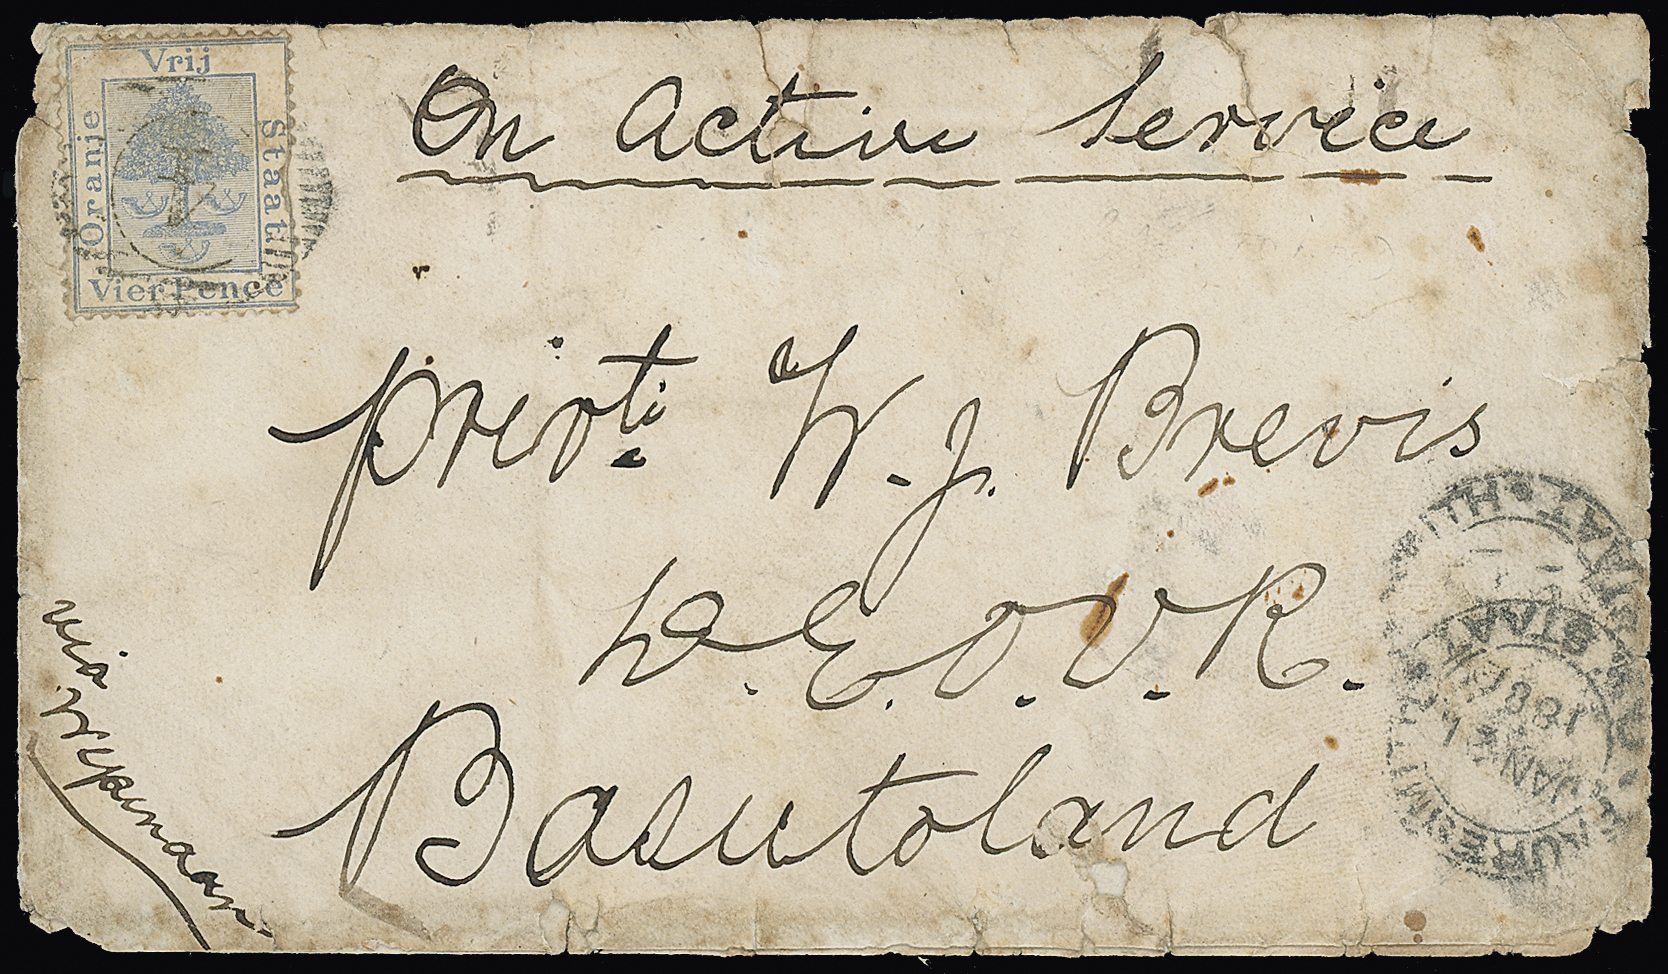 Vrij
Oranje
Staat
Vier Pence
On Active Service
privte W. J. Brevis
D. E. O. V. R.
Basutoland
via Wepenaar
SMITHFIELD
STAAT
JAN
1881